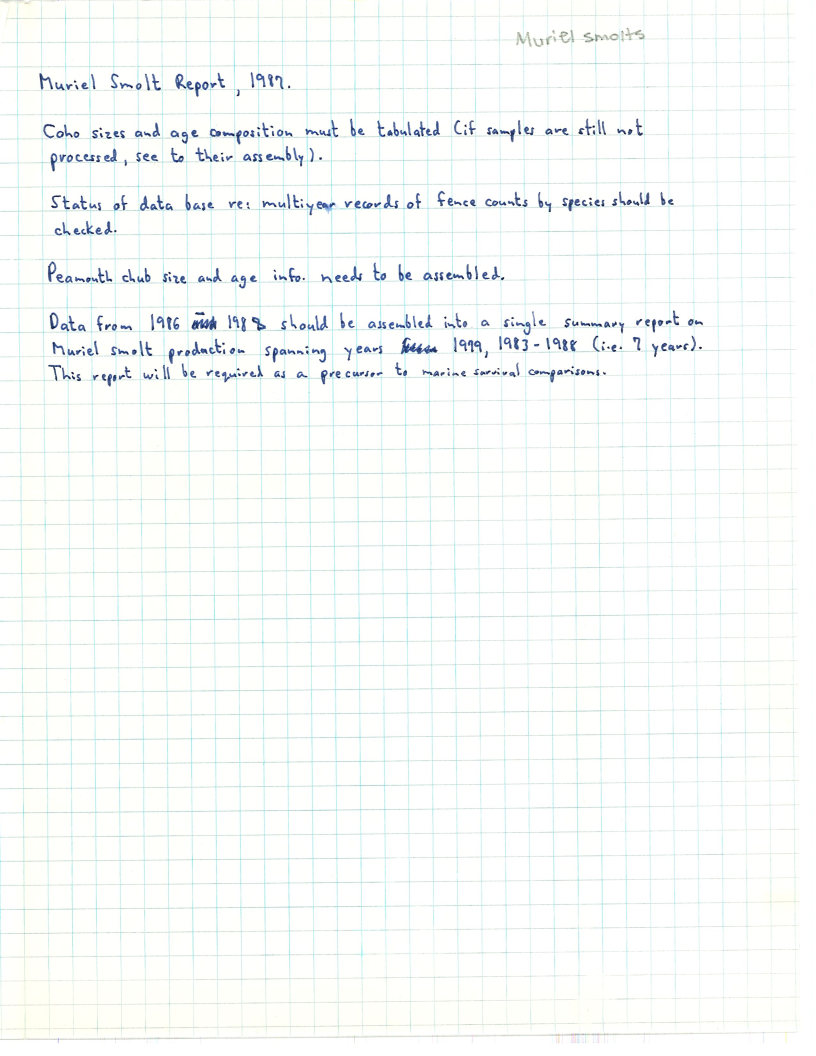 Muriel Smolts
Muriel Smolt Report, 1987.
Coho sizes and age composition must be tabulated (if samples are still not
processed, see to their assembly).
Status of data base re: multiyear records of fence counts by species should be
checked.
Peamouth chub size and age info. needs to be assembled.
Data from 1986 - 1988 should be assembled into a single summary report on
Muriel smolt production spanning years 1979, 1983-1988 (i.e. 7 years).
This report will be required as a precursor to marine survival comparisons.